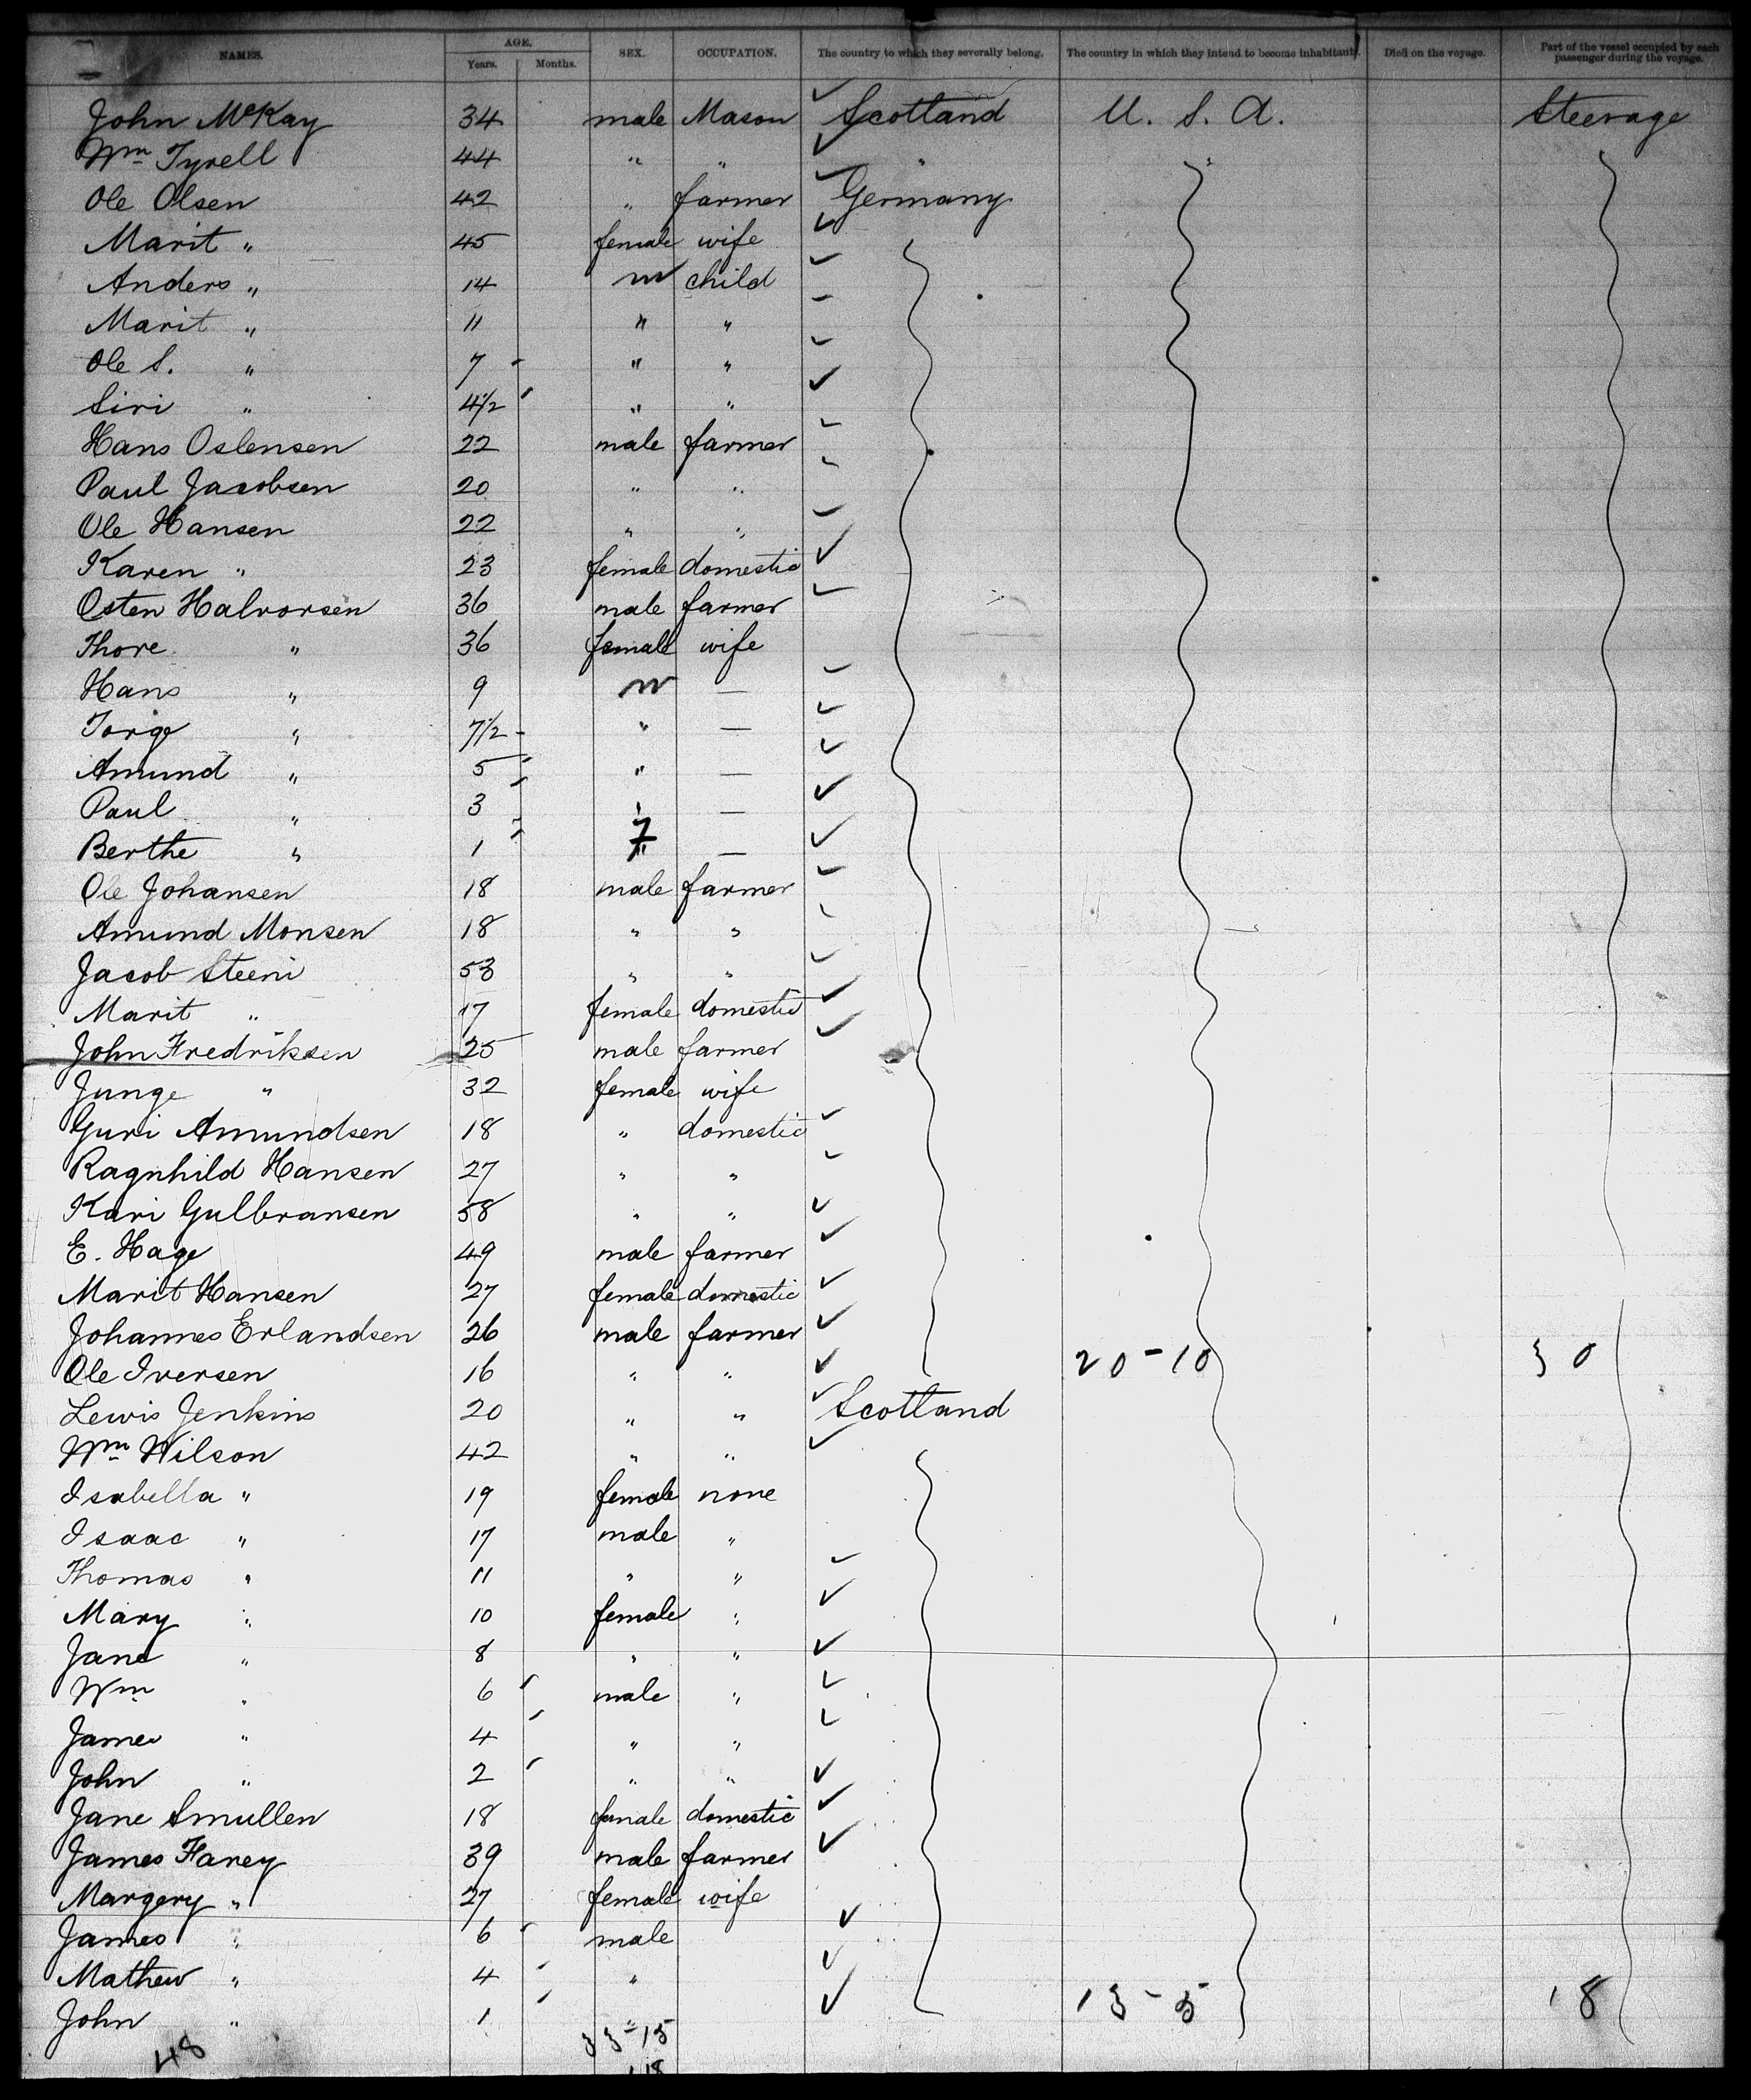 NAMES. AGE. Years. Months. SEX. OCCUPATION. The country to which they severally belong. The country in which they intend to become inhabitants. Died on the voyage. Part of the vessel occupied by each passenger during the voyage.
John McKay 34 male Mason Scotland U. S. A. Steerage
Wm Tyrell 44 " " " "
Ole Olsen 42 " farmer Germany
Marit " 45 female wife
Anders " 14 m child
Marit " 11 " "
Ole S. " 7 " "
Siri " 4 1/2 " "
Hans Oslensen 22 male farmer
Paul Jacobsen 20 " "
Ole Hansen 22 " "
Karen " 23 female domestic
Osten Halvorsen 36 male farmer
Thore " 36 female wife
Hans " 9 m —
Torge " 7 1/2 " —
Amund " 5 " —
Paul " 3 " —
Berthe " 1 f —
Ole Johansen 18 male farmer
Amund Monsen 18 " "
Jacob Steeni 53 " "
Marit " 17 female domestic
John Fredriksen 25 male farmer
Junge " 32 female wife
Guri Amundsen 18 " domestic
Ragnhild Hansen 27 " "
Kari Gulbransen 58 " "
E. Hage 49 male farmer
Marit Hansen 27 female domestic
Johannes Erlandsen 26 male farmer
Ole Iversen 16 " " 20-10 30
Lewis Jenkins 20 " " Scotland
Wm Wilson 42 " "
Isabella " 19 female none
Isaac " 17 male "
Thomas " 11 " "
Mary " 10 female "
Jane " 8 " "
Wm " 6 male "
James " 4 " "
John " 2 " "
Jane Smullen 18 female domestic
James Farey 39 male farmer
Margery " 27 female wife
James " 6 male
Mathew " 4 "
John " 1 " 13-5 18
48 33-15